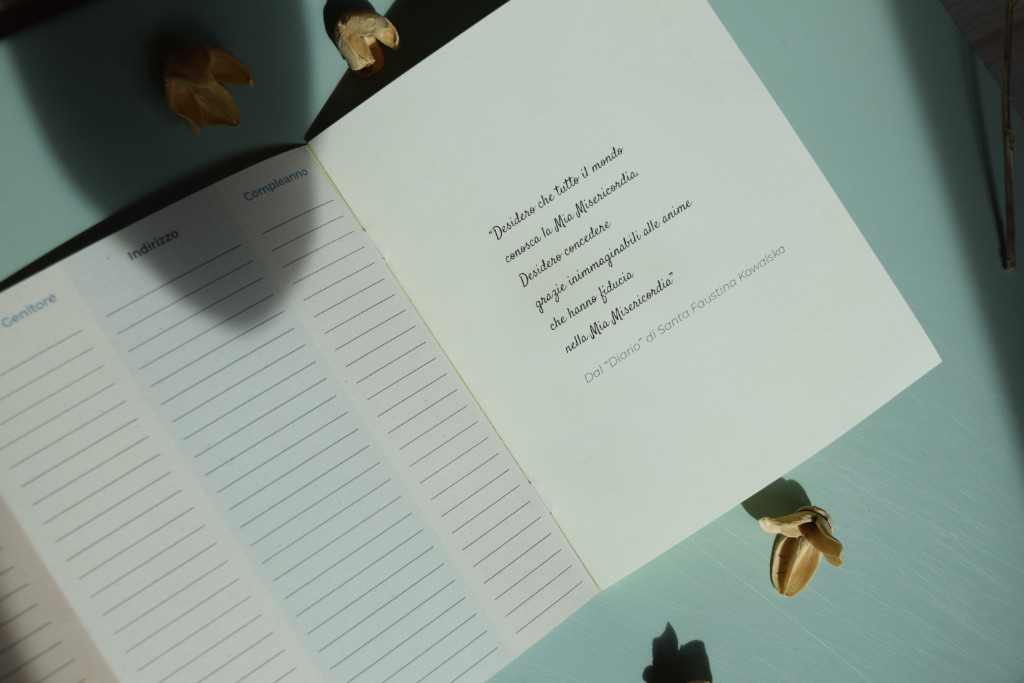 Genitore
Indirizzo
Compleanno
"Desidero che tutto il mondo
conosca la Mia Misericordia.
Desidero concedere
grazie inimmaginabili alle anime
che hanno fiducia
nella Mia Misericordia"
Dal "Diario" di Santa Faustina Kowalska